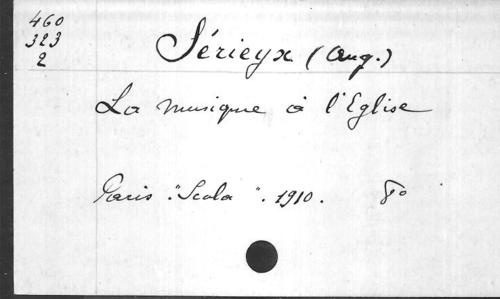 460
323
2
Sérieyx (Aug.)
La musique à l'Eglise
Paris. "Scola". 1910. 8°